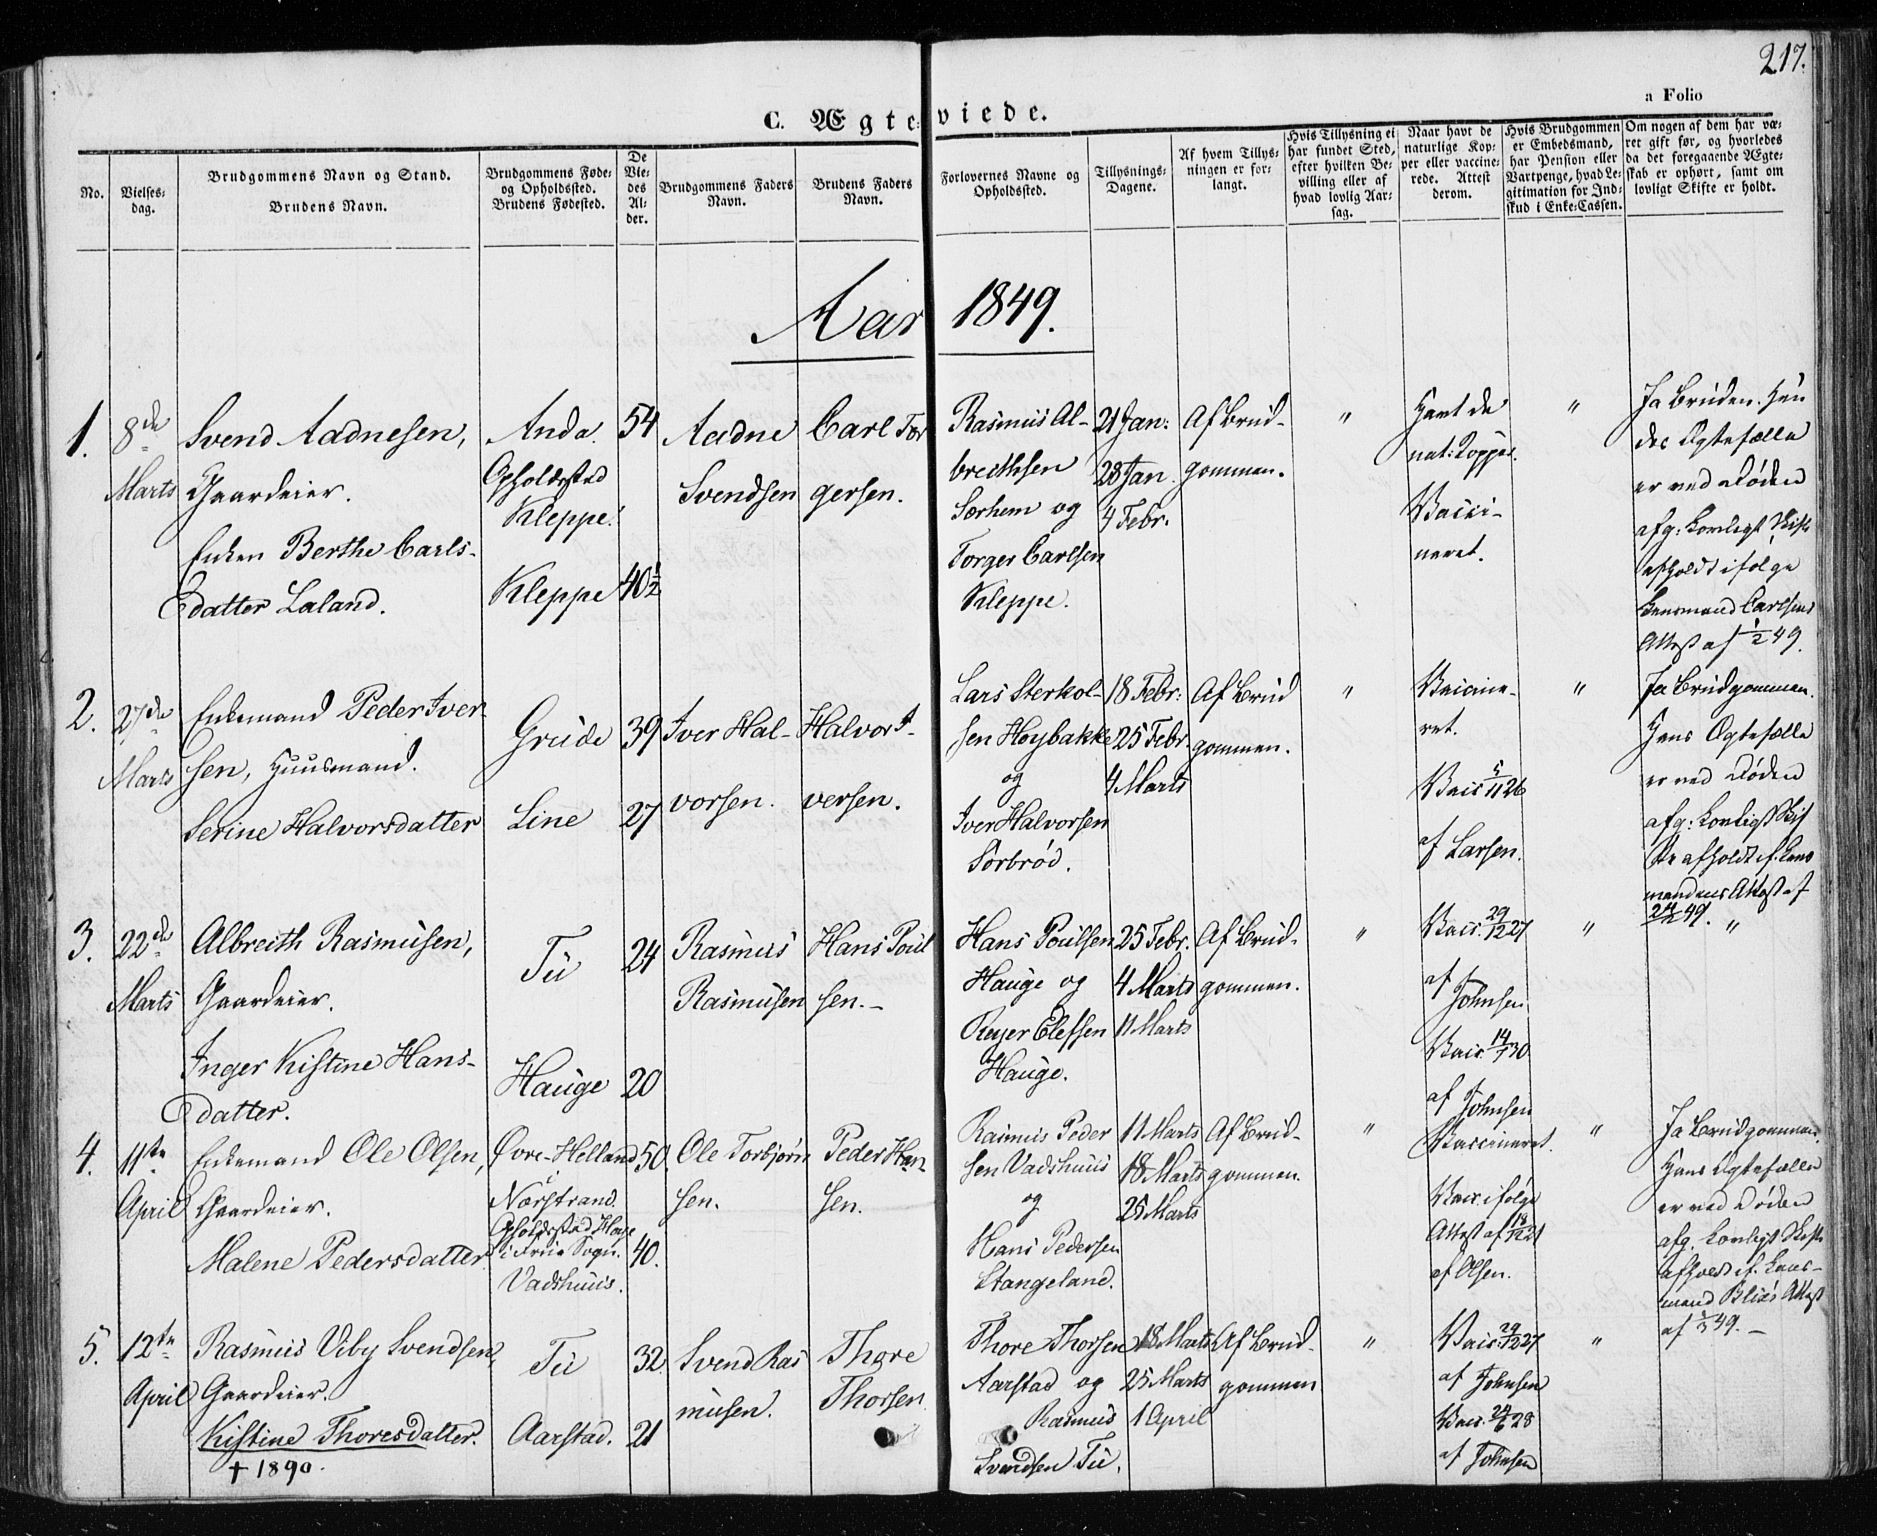 217.
a Folio
C. Ægteviede.
No.
Vielses-
dag.
Brudgommens Navn og Stand.
Brudens Navn.
Brudgommens Føde-
og Opholdssted.
Brudens Fødested.
De
Vie-
des
Al-
der.
Brudgommens Faders
Navn.
Brudens Faders
Navn.
Forlovernes Navne og
Opholdssted.
Tillysnings-
Dagene.
Af hvem Tillys-
ningen er for-
langt.
Hvis Tillysning ei
har fundet Sted,
efter hvilken Be-
villing eller af
hvad lovlig Aar-
sag.
Naar havt de
naturlige Kop-
per eller vaccine-
rede. Attest
derom.
Hvis Brudgommen
er Embedsmand,
har Pension eller
Vartpenge, hvad Le-
gitimation for Ind-
skud i Enke-Cassen.
Om nogen af dem har væ-
ret gift før, og hvorledes
da det foregaaende Ægte-
skab er ophørt, samt om
lovligt Skifte er holdt.
Aar 1849.
1.
8de
Marts
Svend Aadnesen,
Gaardeier.
Enken Berthe Carls-
datter Laland.
Anda.
Opholdssted
Kleppe.
Kleppe
54
40 1/2
Aadne
Svendsen
Carl Tor
gersen.
Rasmus Al-
brethsen
Sørhem og
Torger Carlsen
Kleppe.
21 Jan:
28 Jan.
4 Febr.
Af Brud-
gommen.
"
Havt de
nat: Kopper.
Vacci-
neret.
"
Ja Bruden. Hen
des Ægtefælle
er ved Døden
afg: Lovligt Skifte
afholdt ifølge
Lensmand Carlsens
Attest af 1/2 49.
2.
27de
Marts
Enkemand Peder Iver-
sen, Huusmand.
Serine Halvorsdatter
Grude
Line
39
27
Iver Hal-
vorsen.
Halvor I-
versen.
Lars Sterkol-
sen Høybakke
og
Iver Halvorsen
Sørbrød.
18 Febr:
25 Febr.
4 Marts
Af Brud
gommen.
"
Vaccine-
ret.
Vacc. 5/11 26
af Larsen.
"
Ja Brudgommen.
Hans Ægtefælle
er ved Døden
afg: Lovligt Skif
te afholdt if. Lens
mandens Attest af
24/2 49.
3.
22de
Marts
Albreith Rasmusen,
Gaardeier.
Inger Kistine Hans-
datter.
Tu
Hauge
24
20
Rasmus
Rasmusen
Hans Poul
sen.-
Hans Poulsen
Hauge og
Reyer Elefsen
Hauge.
25 Febr.
4 Marts
11 Marts
Af Brud-
gommen.
"
Vacc. 29/12 27
af
Johnsen
Vacc. 14/7 30
af
Johnsen
"
"
4.
11te
April
Enkemand Ole Olsen,
Gaardeier.
Malene Pedersdatter
Øvre-Helland
i
Nærstrand.
Opholdssted
i Frue Sogn.
Vadshuus.
50.
40.
Ole Torbjørn
sen.
Peder Han
sen.
Rasmus Peder
sen Vadshuus
og
Hans Pedersen
Stangeland.
11 Marts
18 Marts
25 Marts
Af Brud-
gommen.
"
Vaccineret.
Vacc. ifølge
Attest af
af Olsen.
"
Ja Brudgommen.
Hans Ægtefælle
er ved Døden
afg. Lovligt Skifte
afholdt if. Lens-
mand Attest
af 49.
5.
12te
April
Rasmus Viby Svendsen,
Gaardeier.
Kistine Thoresdatter.
+ 1890.
Tu
Aarstad.
32
21
Svend Ras
musen.
Thore
Thorsen.
Thore Thorsen
Aarstad og
Rasmus
Svendsen Tu.
18 Marts
25 Marts
1 April
Af Brud-
gommen
"
Vacc. 29/12 27
af Johnsen
Vacc. 24/6 28
af Johnsen
"